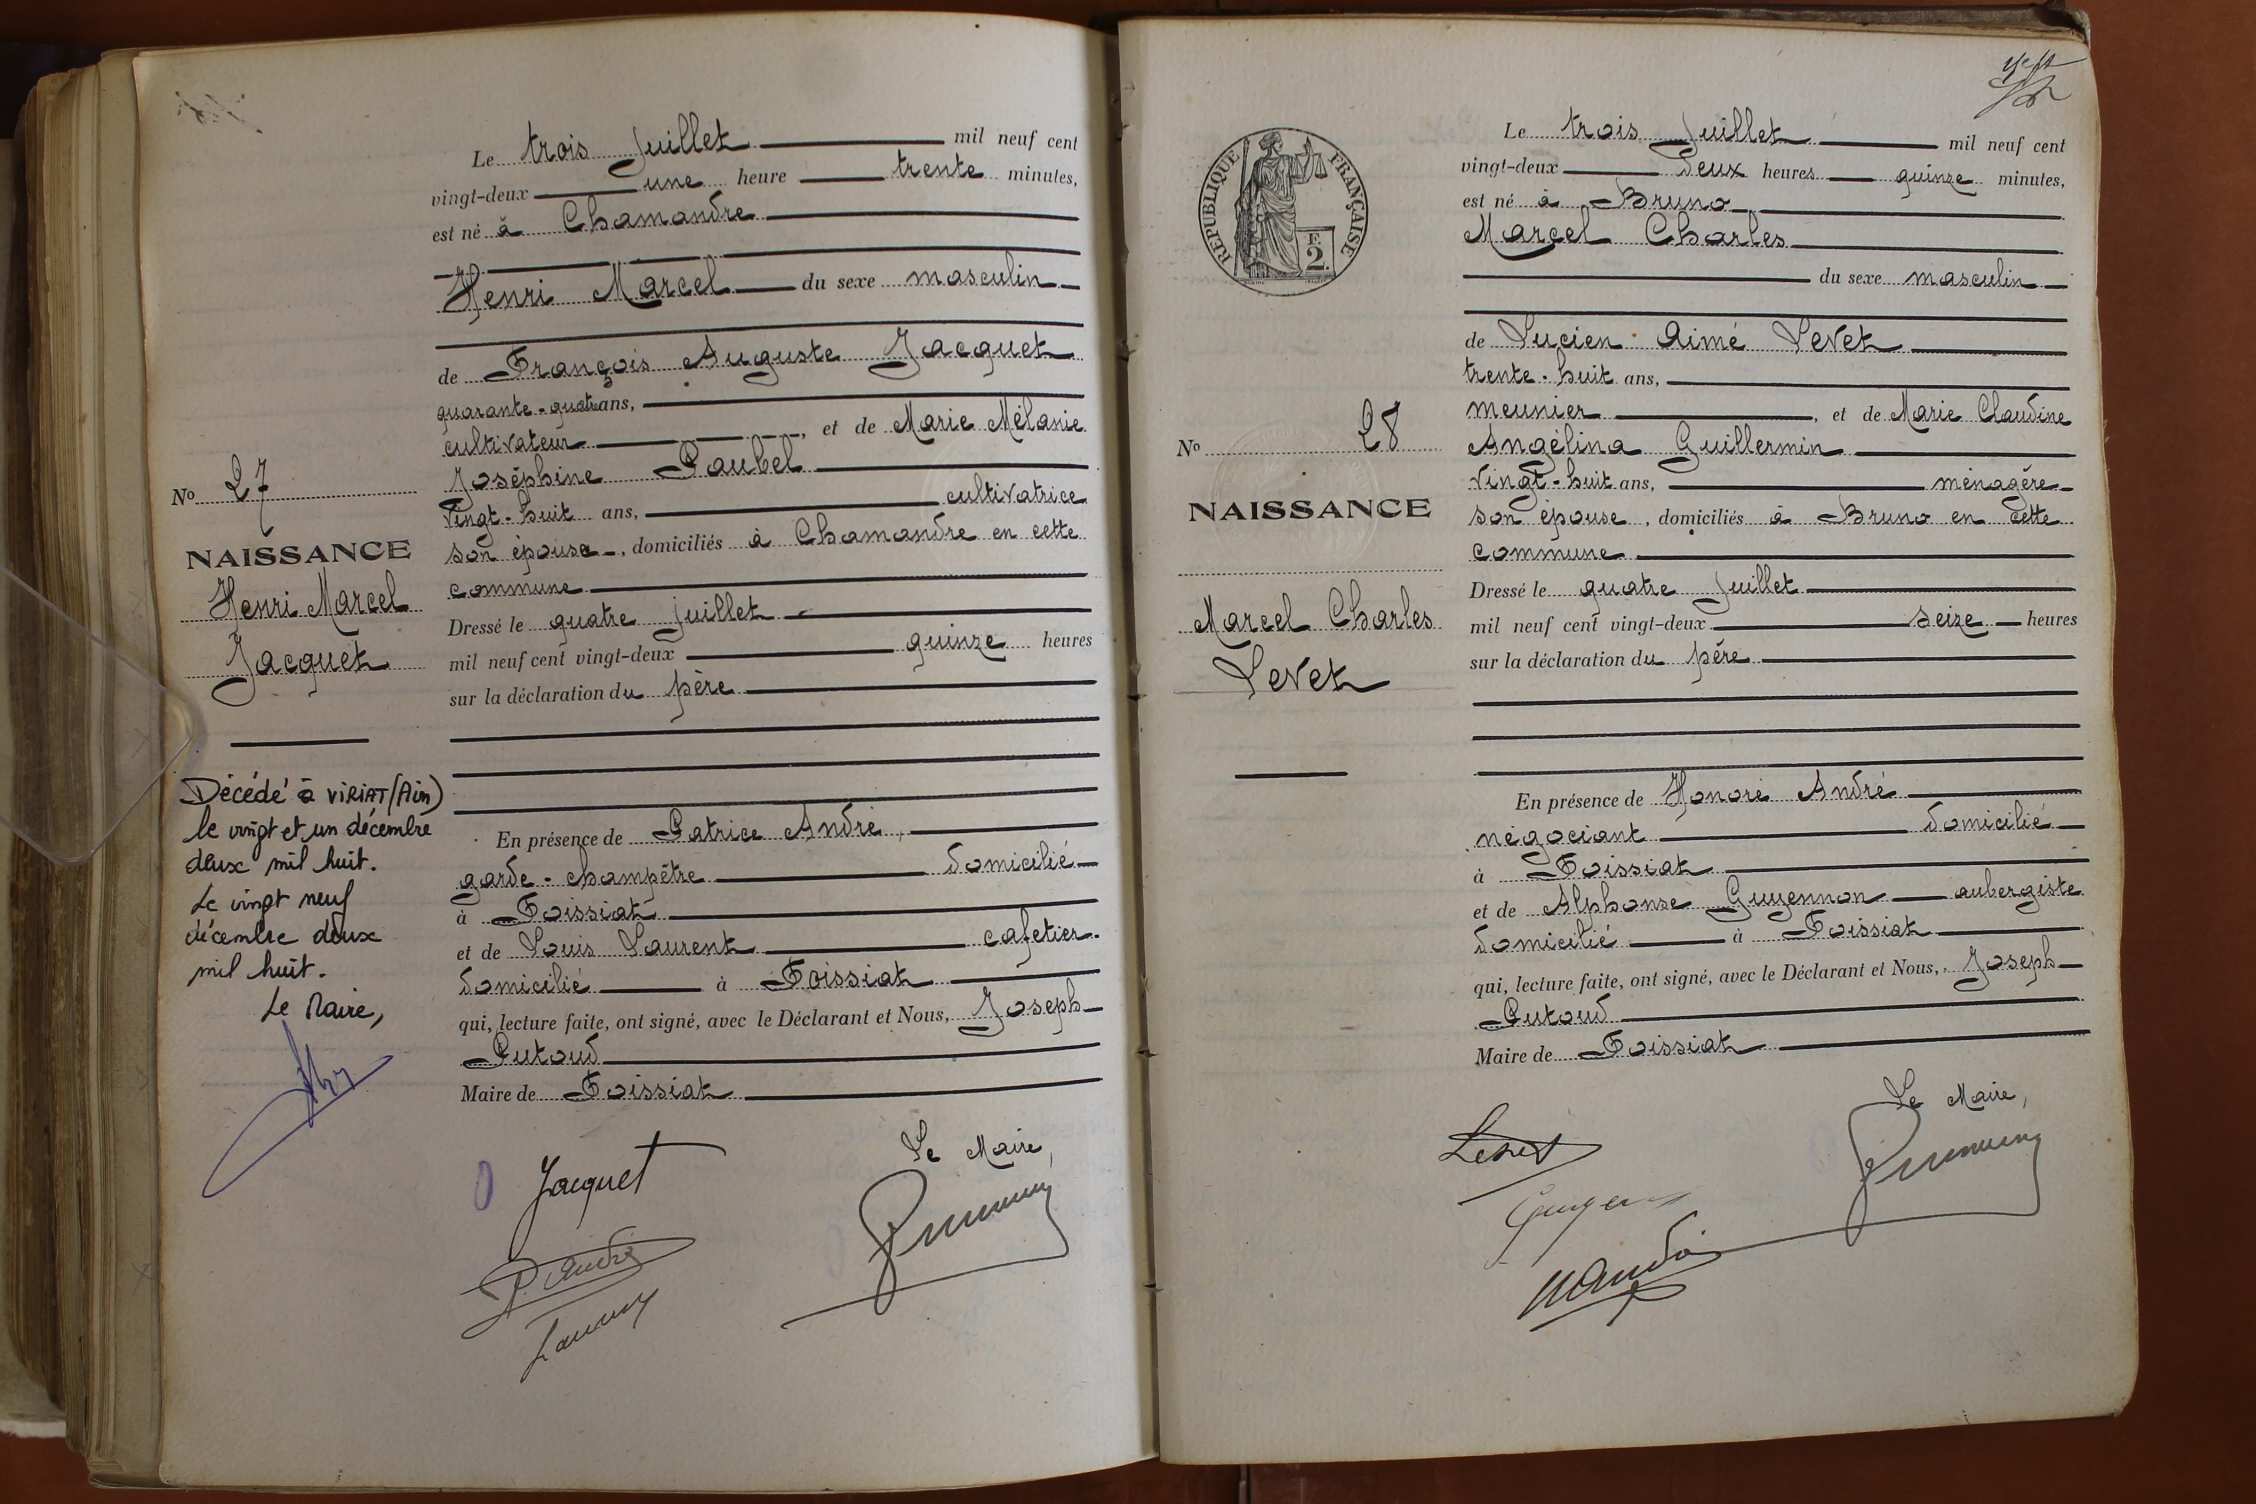 Le trois Juillet mil neuf cent
vingt-deux une heure trente minutes,
est né à Chamandre
Henri Marcel du sexe masculin
de François Auguste Jacquet
quarante-quatre ans,
cultivateur, et de Marie Mélanie
Joséphine Paubel
vingt-huit ans, cultivatrice
son épouse, domiciliés à Chamandre en cette
commune
Dressé le quatre juillet
mil neuf cent vingt-deux quinze heures
sur la déclaration du père
En présence de Patrice André,
garde-champêtre domicilié
à Foissiat
et de Louis Laurent cafetier
domicilié à Foissiat
qui, lecture faite, ont signé, avec le Déclarant et Nous, Joseph
Putoud
Maire de Foissiat
Le Maire,
Jacquet
P. André
No 27
NAISSANCE
Henri Marcel
Jacquet
Décédé à VIRIAT (Ain)
le vingt et un décembre
deux mil huit.
Le vingt neuf
décembre deux
mil huit.
Le Maire,
RÉPUBLIQUE FRANÇAISE
F.
2
No 28
NAISSANCE
Marcel Charles
Levet
Le trois Juillet mil neuf cent
vingt-deux deux heures quinze minutes,
est né à Bruno
Marcel Charles
du sexe masculin
de Lucien Aimé Levet
trente-huit ans,
meunier, et de Marie Claudine
Angélina Guillermin
vingt-huit ans, ménagère
son épouse, domiciliés à Bruno en cette
commune
Dressé le quatre juillet
mil neuf cent vingt-deux seize heures
sur la déclaration du père
En présence de Honoré André
négociant domicilié
à Foissiat
et de Alphonse Guyennon aubergiste
domicilié à Foissiat
qui, lecture faite, ont signé, avec le Déclarant et Nous, Joseph
Putoud
Maire de Foissiat
Le Maire,
Levet